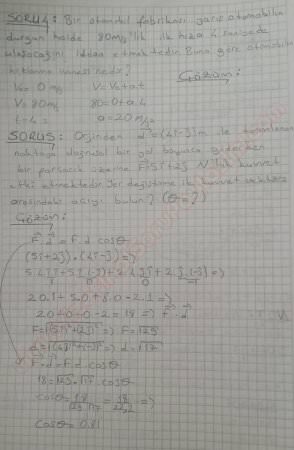 SORU4: Bir otomobil fabrikası yarış otomobilin
durgun halde 80m/s'lik ilk hıza 4 saniyede
ulaşacağını iddaa etmektedir. Buna göre otomobilin
ivmesi nedir? Çözüm:
V₀=0 m/s V=V₀+a.t
V=80m/s 80=0+a.4
t=4s a=20m/s²
SORU5: Orjinden d=(4i-j)m ile tanımlanan
noktaya doğrusal bir yol boyunca giderken
bir parçacık üzerine F=5i+2j N'luk kuvvet
etki etmektedir. Yer değiştirme ile kuvvet vektörü
arasındaki açıyı bulun? (θ=?)
Çözüm:
F.d=F.d cosθ
(5i+2j).(4i-j)=>
5.4 i.i+5.i.(-j)+2.4 j.i+2.j.(-j)=>
1 0 0 -1
20.1+5.0+8.0-2.1=>
20+0+0-2=18=> F.d
F=√(5)²+(2)² F=√29
d=√(4)²+(-1)² d=√17
F.d=F.d cosθ
18=√29.√17.cosθ
cosθ=18/√29.√17=18/22,2=>
cosθ=0.81